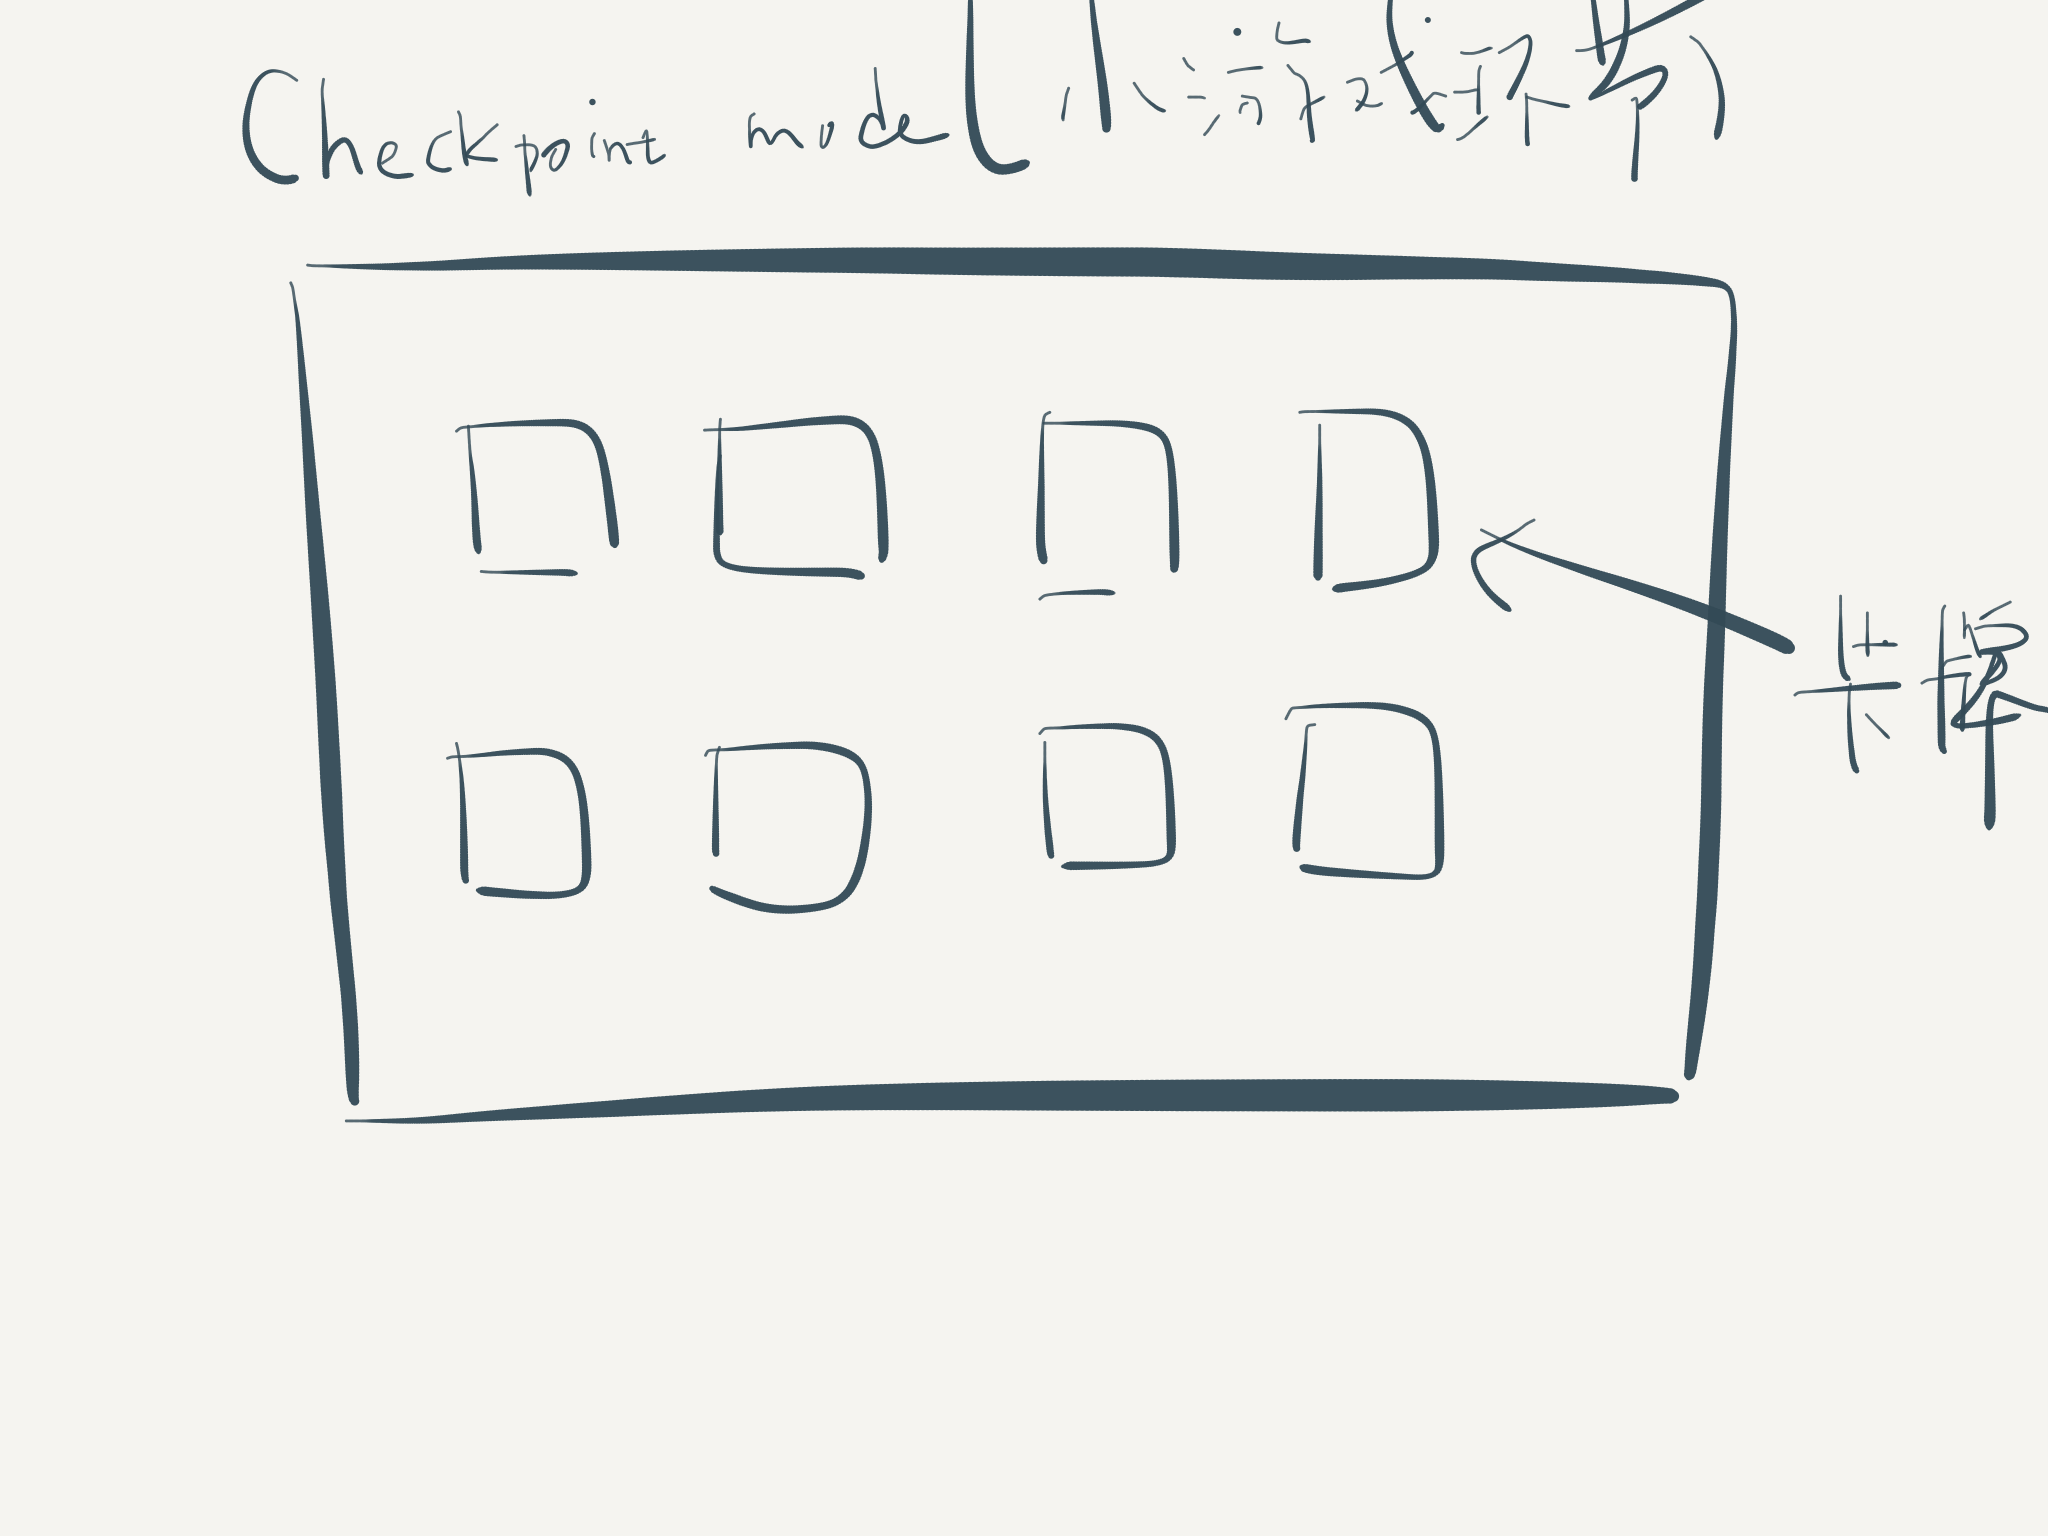 Checkpoint mode (小游戏环节)
卡牌